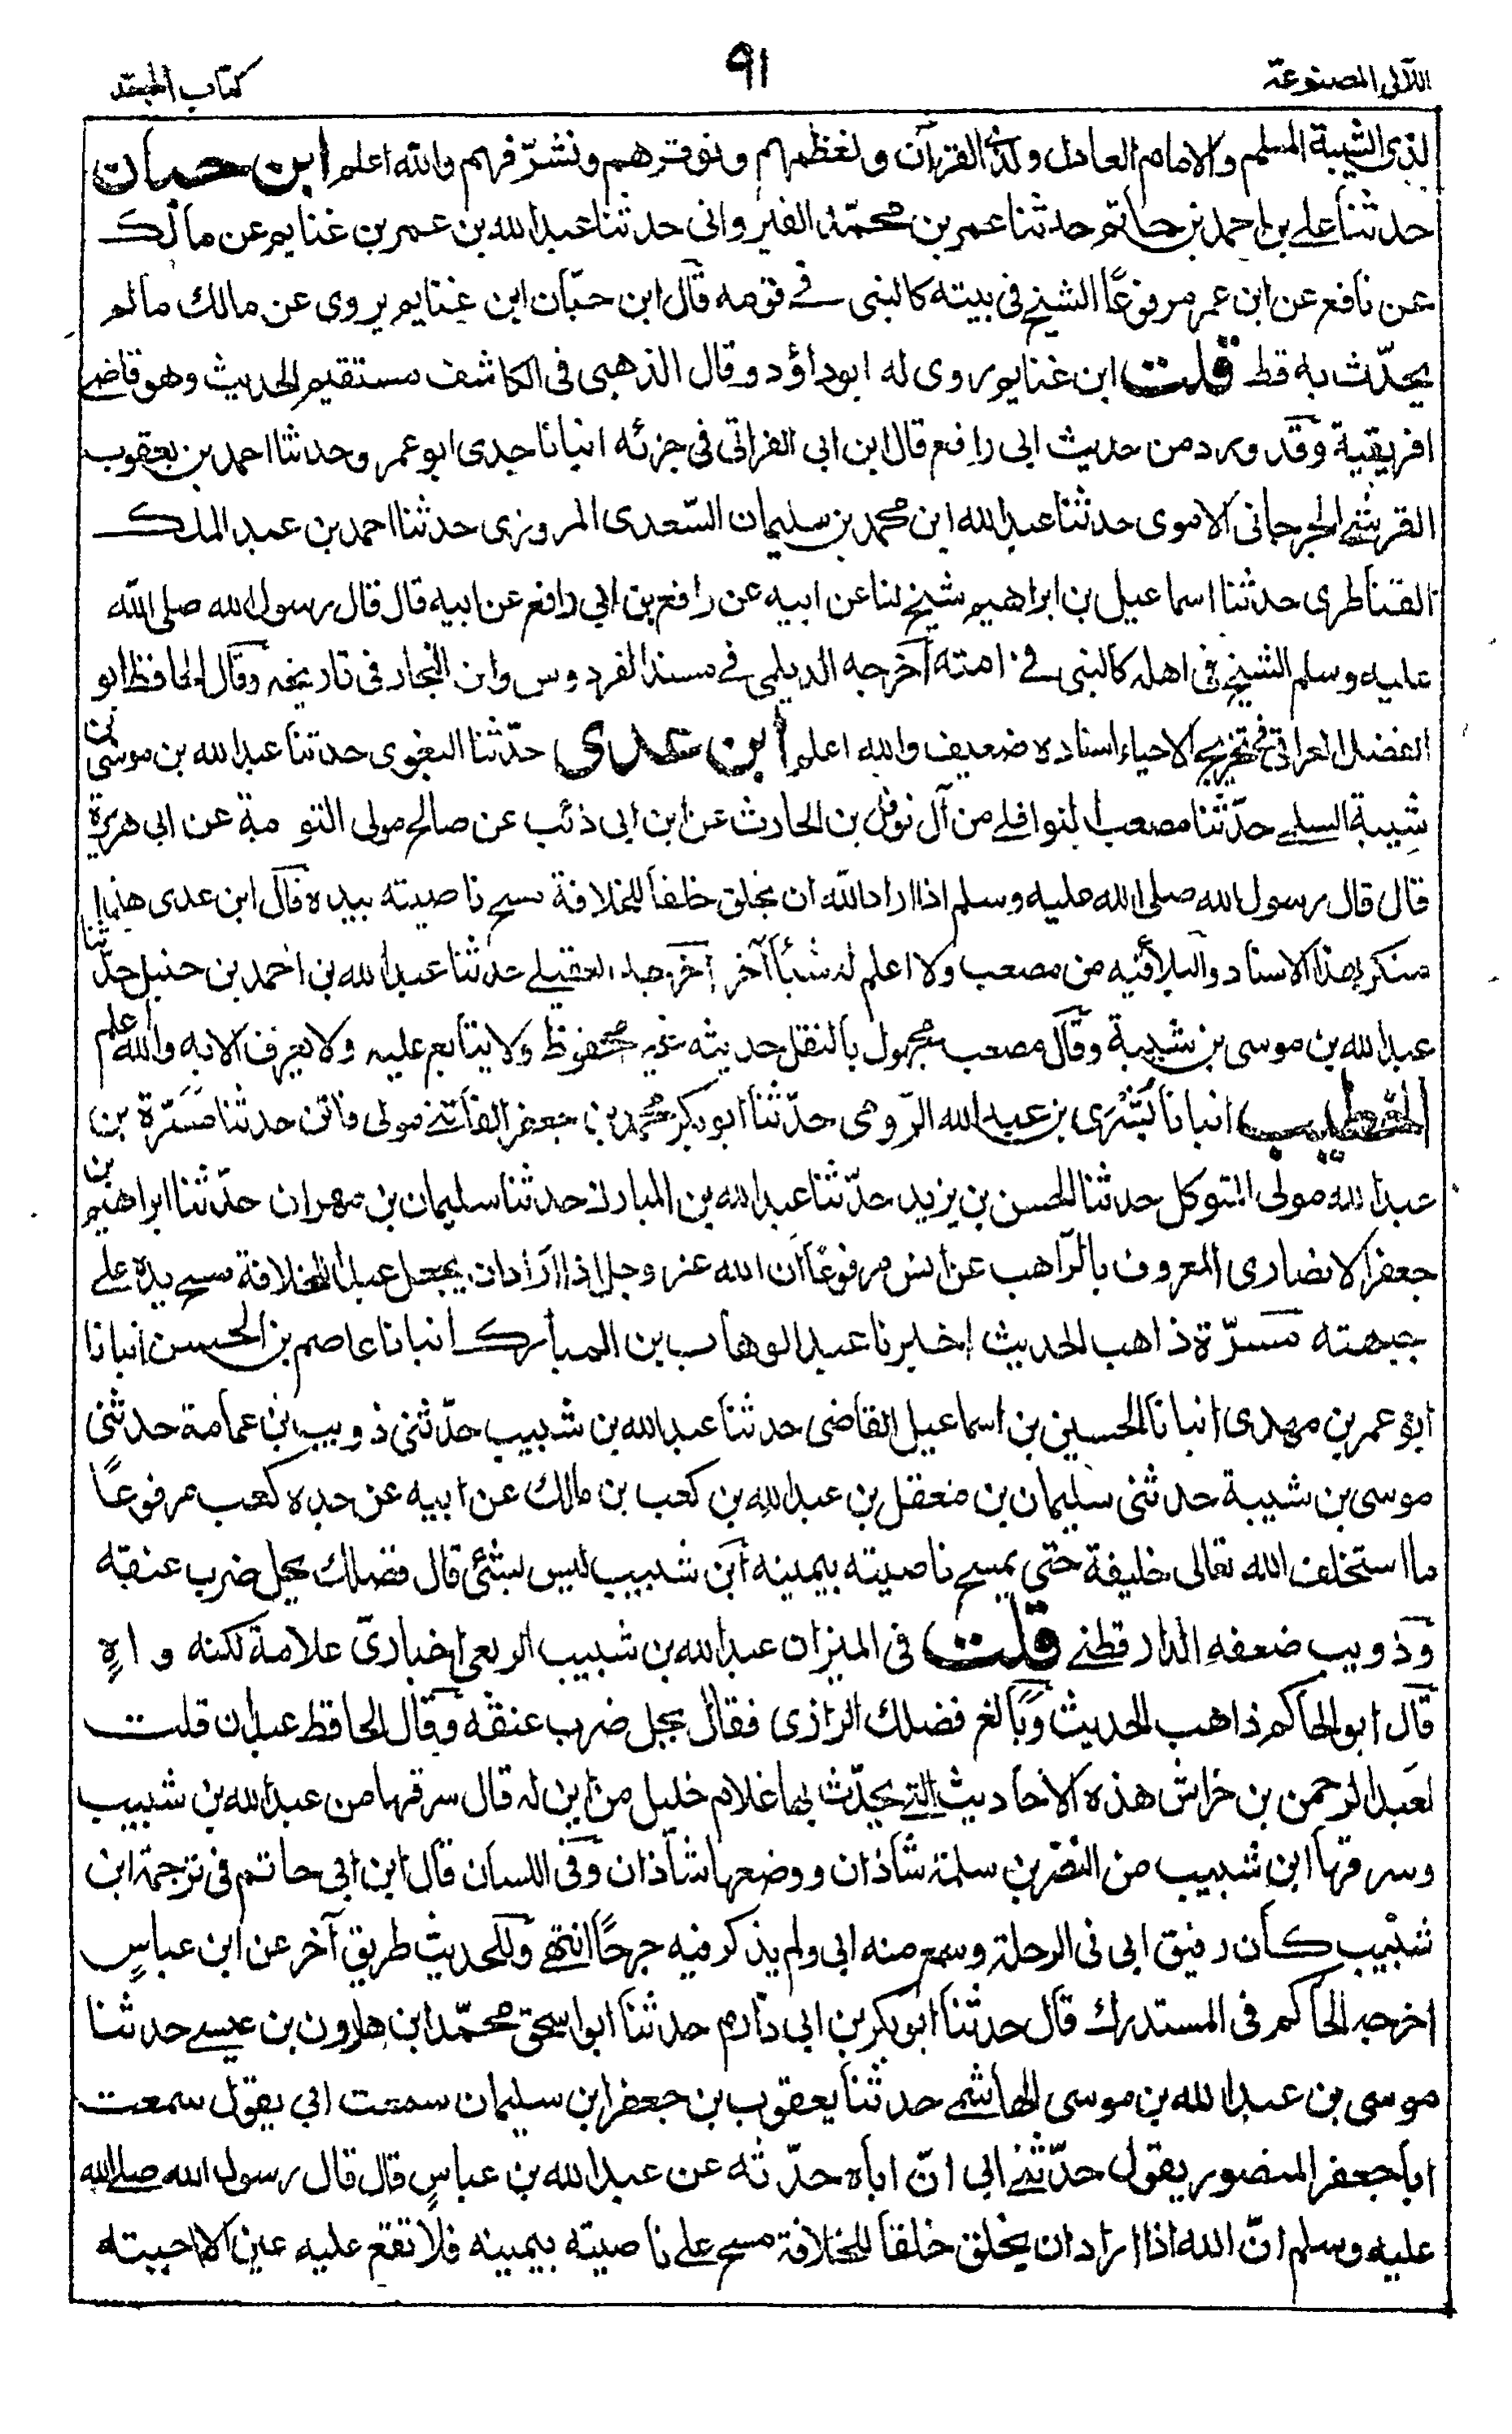 اللآلی المصنوعة
٩١
کتاب المبتدٔ
لذی الشیبة المسلم والامام العادل ولذی القرآن ونعظمهم ونوقرهم ونشرّفهم والله اعلم ابن حبان
حدثنا علے بن احمد بن حاتم حدثنا عمر بن محمّد القیروانی حدثنا عبد الله بن عمر بن غنایم عن مالک
عن نافع عن ابن عمر مرفوعًا الشیخ فی بیته کالنبی فے قومه قال ابن حبّان ابن غنایم یروی عن مالک مالم
یحدّث به قط قلت ابن غنایم روی له ابوداؤد وقال الذهبی فی الکاشف مستقیم الحدیث وهو قاضی
افریقیة وقد ورد من حدیث ابی رافع قال ابن ابی الفراتی فی جزئه انبانا جدی ابو عمر وحدثنا احمد بن یعقوب
القرشے الجرجانی الاموی حدثنا عبد الله ابن محمد بن سلیمان السّعدی المروزی حدثنا احمد بن عبد الملک
القناطری حدثنا اسماعیل بن ابراهیم شیخ لنا عن ابیه عن رافع بن ابی رافع عن ابیه قال قال رسول الله صلی الله
علیه وسلم الشیخ فی اهله کالنبی فے امته اخرجه الدیلمی فے مسند الفردوس وابن النجار فی تاریخه وقال الحافظ ابو
الفضل العراقی فے تخریج الاحیاء اسناده ضعیف والله اعلم ابن عدی حدّثنا البغوی حدثنا عبد الله بن موسی بن
شیبة السلمے حدّثنا مصعب النوافلے من آل نوفل بن الحارث عن ابن ابی ذئب عن صالح مولی التومة عن ابی هریرة
قال قال رسول الله صلی الله علیه وسلم اذا اراد الله ان یخلق خلقًا للخلافة مسح ناصیته بیده قال ابن عدی هذا
منکر بهذا الاسناد والبلاء فیه من مصعب ولا اعلم له شیأ آخر اخرجه العقیلے حدثنا عبد الله بن احمد بن حنبل حدّثنا
عبد الله بن موسی بن شیبة وقال مصعب مجهول بالنقل حدیثه غیر محفوظ ولا یتابع علیه ولا یعرف الا به والله اعلم
الخطیب انبانا بُشری بن عبد الله الرّومی حدّثنا ابو بکر محمد بن جعفر الفاتنے مولی فاتن حدثنا مَسَرّة بن
عبد الله مولی المتوکل حدثنا الحسن بن یزید حدّثنا عبد الله بن المبارک حدثنا سلیمان بن مهران حدّثنا ابراهیم بن
جعفر الانصاری المعروف بالرّاهب عن انس مرفوعًا ان الله عز وجل اذا اراد ان یجعل عبدا للخلافة مسح یده علے
جبهته مسرّة ذاهب الحدیث اخبرنا عبد الوهاب بن المبارک انبانا عاصم بن الحسن انبانا
ابو عمر بن مهدی انبانا الحسین بن اسماعیل القاضی حدثنا عبد الله بن شبیب حدّثنی ذویب بن عمامة حدثنی
موسی بن شیبة حدثنی سلیمان بن معقل بن عبد الله بن کعب بن مالک عن ابیه عن جده کعب مرفوعًا
ما استخلف الله تعالی خلیفة حتی یمسح ناصیته بیمینه ابن شبیب لیس بشئی قال فضلک یحل ضرب عنقه
وذویب ضعفه الدارقطنے قلت فی المیزان عبد الله بن شبیب الربعی اخباریّ علامة لکنه واهٍ
قال ابو الحاکم ذاهب الحدیث وبالغ فضلک الرازی فقال یحل ضرب عنقه وقال الحافظ عبدان قلت
لعبد الرحمن بن خراش هذه الاحادیث التے یحدّث بها غلام خلیل من این له قال سرقها من عبد الله بن شبیب
وسرقها ابن شبیب من النضر بن سلمة شاذان ووضعها شاذان وفی اللسان قال ابن ابی حاتم فی ترجمة ابن
شبیب کان رفیق ابی فی الرحلة وسمع منه ابی ولم یذکر فیه جرحًا انتهے وللحدیث طریق آخر عن ابن عباسٍ
اخرجه الحاکم فی المستدرك قال حدثنا ابو بکر بن ابی دارم حدثنا ابو اسحٰق محمّد ابن هارون بن عیسے حدثنا
موسی بن عبد الله بن موسی الهاشمے حدثنا یعقوب بن جعفر ابن سلیمان سمعت ابی یقول سمعت
ابا جعفر المنصور یقول حدّثنے ابی انّ اباه حدّثه عن عبد الله بن عباسٍ قال قال رسول الله صلے الله
علیه وسلم انّ الله اذا اراد ان یخلق خلقًا للخلافة مسح علے ناصیته بیمینه فلا تقع علیه عین الا احبته